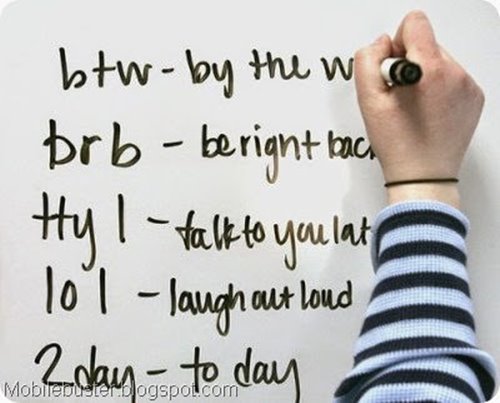 btw - by the w
brb - be right bac
tty l - talk to you lat
lol - laugh out loud
2day - to day
Mobilebuster.blogspot.com